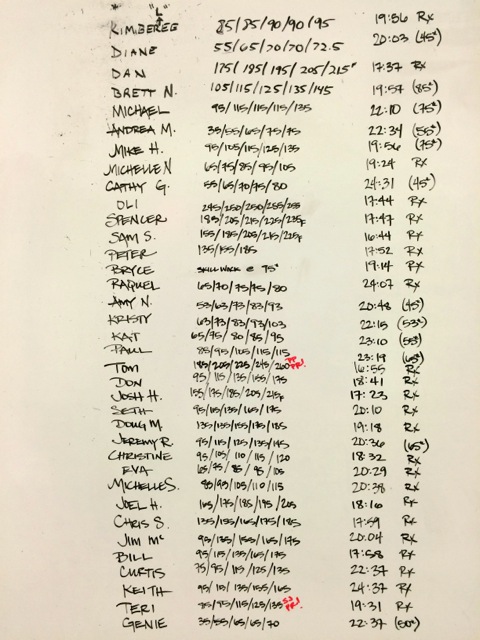 "L"
KIMBEREE 85/85/90/90/95 19:56 Rx
DIANE 55/65/70/70/72.5 20:03 (45#)
DAN 175/185/195/205/215F 17:37 Rx
BRETT N. 105/115/125/135/145 19:57 (85#)
MICHAEL 95/115/115/115/135 22:10 (75#)
ANDREA M. 35/55/65/75/75 22:34 (55#)
MIKE H. 95/105/115/125/135 19:56 (75#)
MICHELLE N 65/75/85/95/105 19:24 Rx
CATHY G. 55/65/70/75/80 24:31 (45#)
OLI 245/250/250/255/255 17:44 Rx
SPENCER 185/205/215/225/235F 17:47 Rx
SAM S. 155/185/205/215/225F 16:44 Rx
PETER 135/155/185 17:52 Rx
BRYCE SKILL WORK @ 95# 19:14 Rx
RAQUEL 65/70/75/75/80 24:07 Rx
AMY N. 53/63/73/83/93 20:48 (45#)
KRISTY 63/73/83/93/103 22:15 (53#)
KAT 65/75/80/85/95 23:10 (55#)
PAUL 85/95/105/115/115 23:19 (65#)
TOM 185/205/225/245/260 PR! 16:55 Rx
DON 95/115/135/155/175 18:41 Rx
JOSH H. 155/175/185/205/215F 17:23 Rx
SETH 95/115/135/165/175 20:10 Rx
DOUG M. 135/135/155/175/185 19:18 Rx
JEREMY R. 95/115/125/135/145 20:36 (65#)
CHRISTINE 95/105/110/115/120 18:32 Rx
EVA 65/75/85/95/105 20:29 Rx
MICHELLE S. 85/95/105/110/115 20:38 Rx
JOEL H. 165/175/185/195/205 18:16 Rx
CHRIS S. 135/155/165/175/185 17:59 Rx
JIM Mc 95/135/155/165/175 20:04 Rx
BILL 95/115/135/165/175 17:58 Rx
CURTIS 75/95/115/125/135 22:37 Rx
KEITH 95/115/135/155/165 24:37 Rx
TERI 95/115/125/135 PR! 19:31 Rx
GENIE 35/55/65/65/70 22:37 (50#)